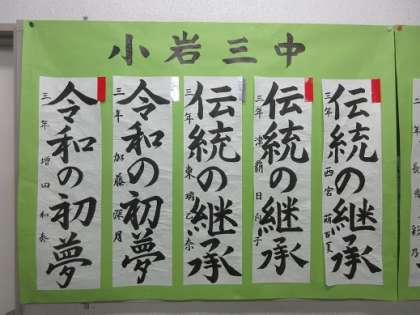 小岩三中
伝統の継承
三年 西宮
伝統の継承
三年 津覇 日向子
伝統の継承
三年 東
令和の初夢
三年 加藤 深月
令和の初夢
三年 増田 和奏